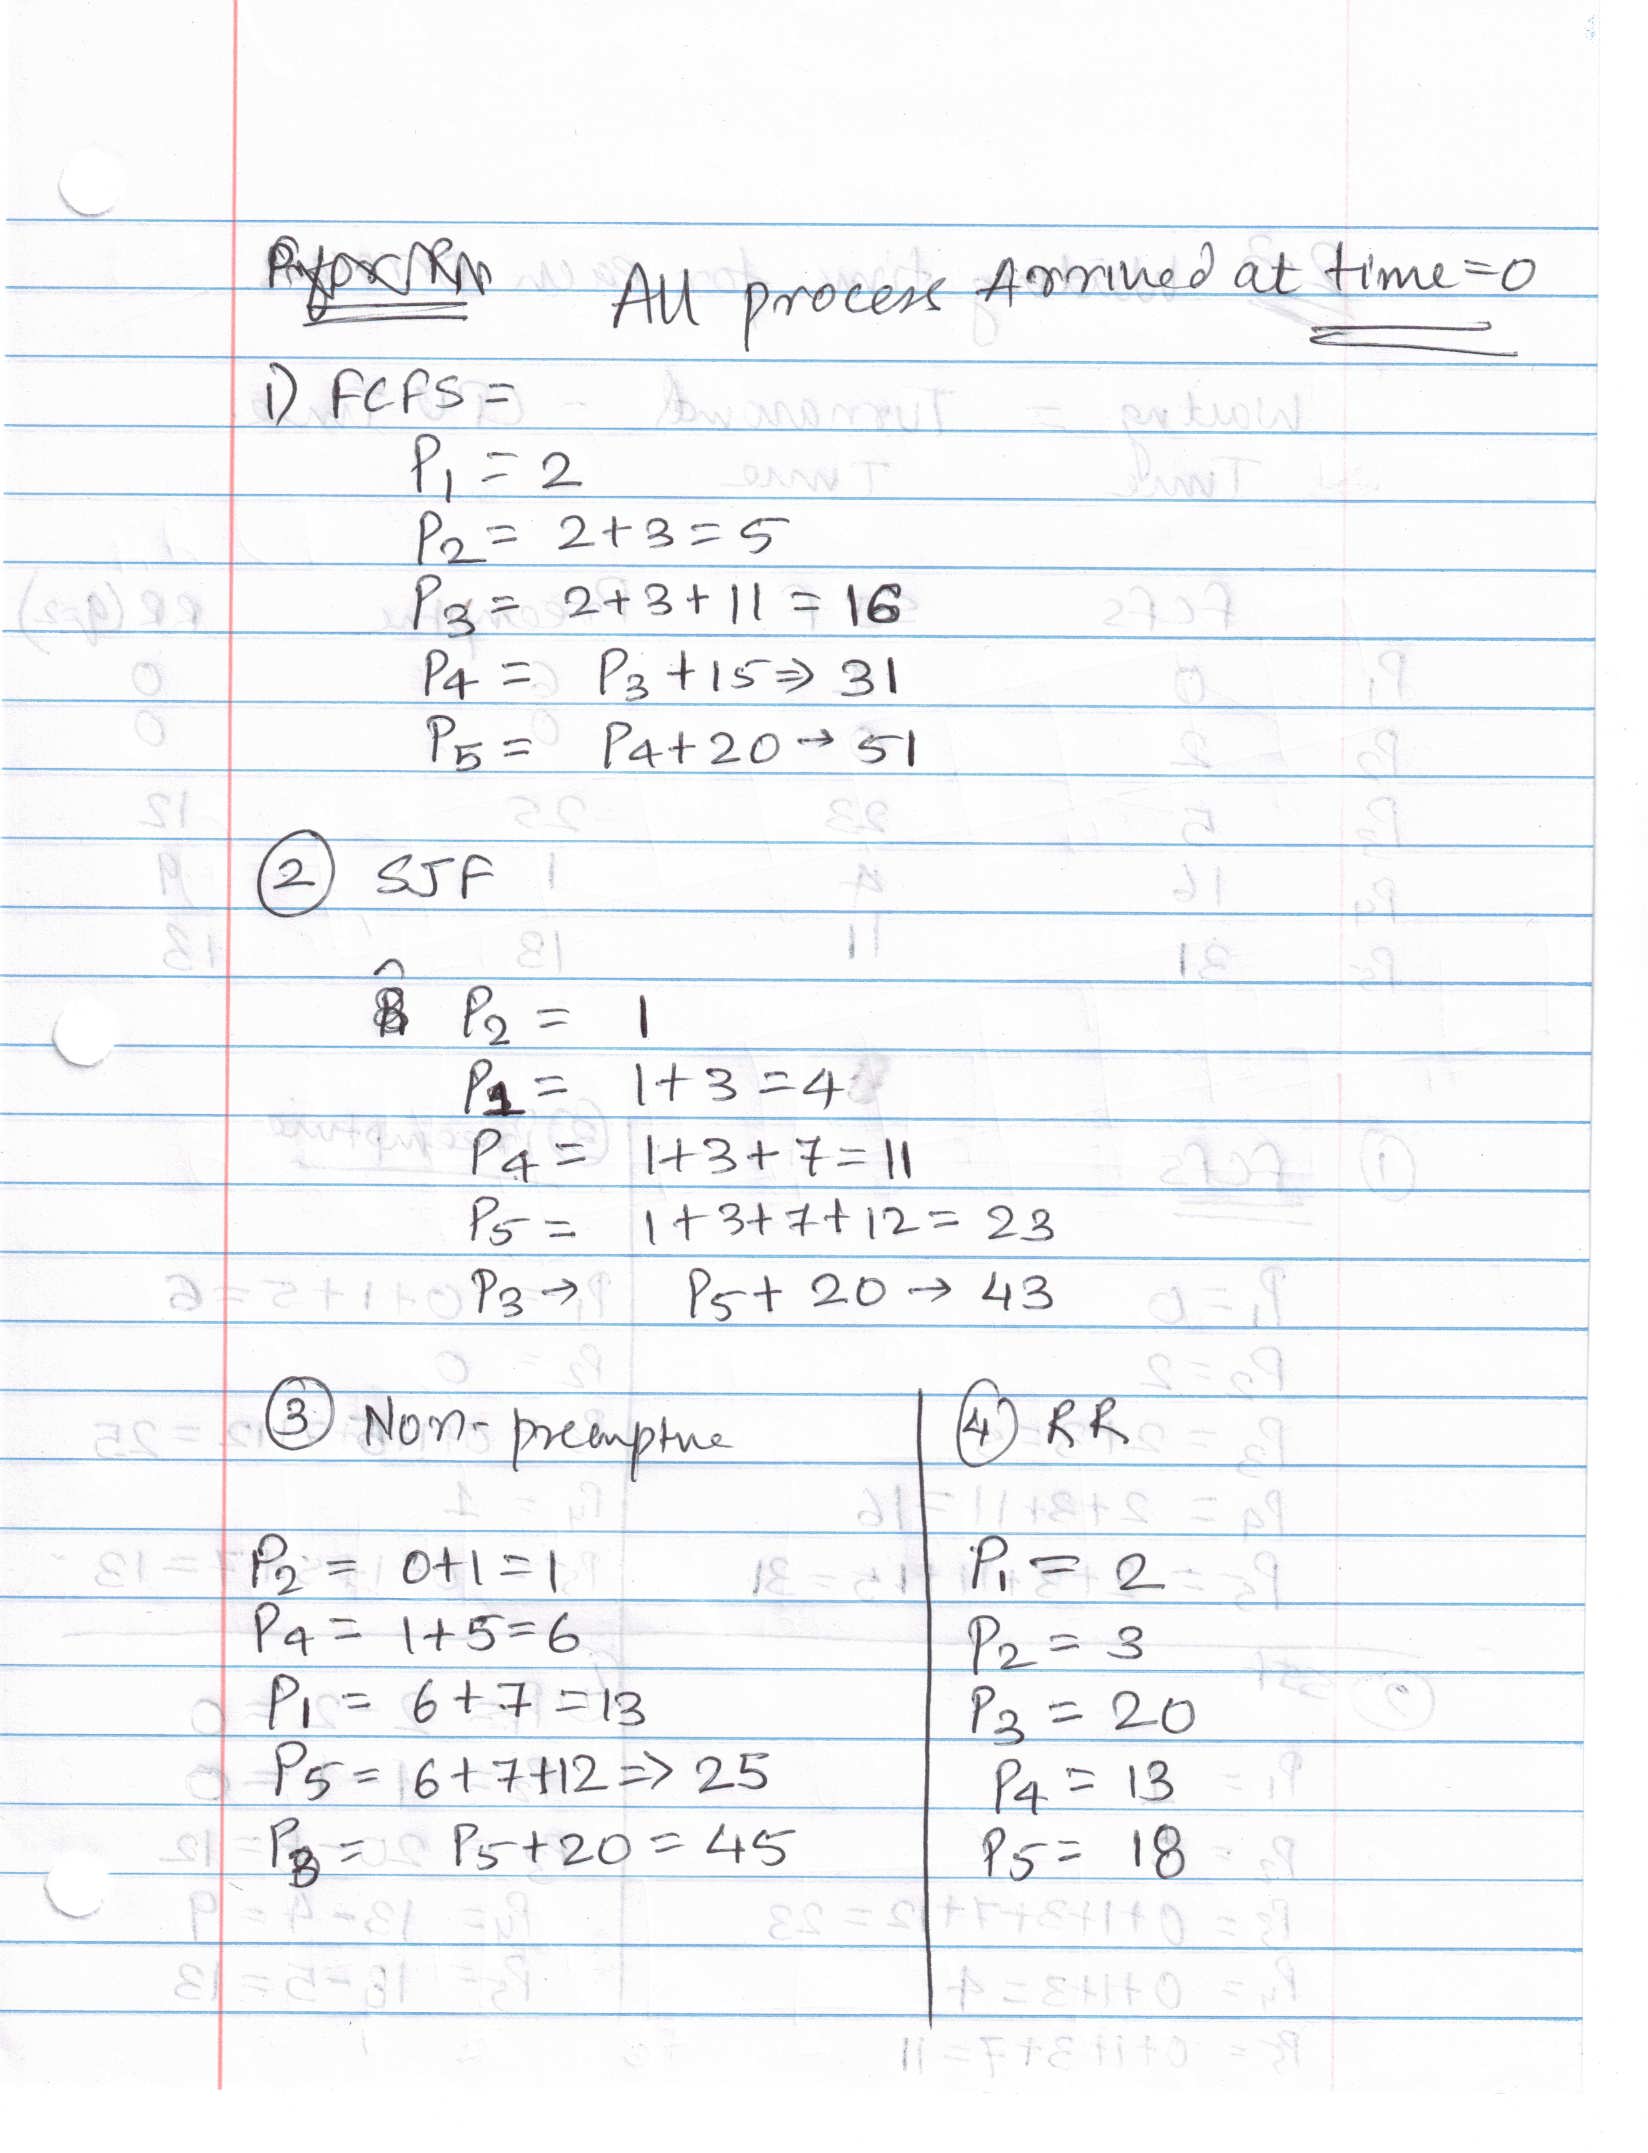 All process Arrived at time=0
1) FCFS =
P1 = 2
P2 = 2+3=5
P3 = 2+3+11 = 16
P4 = P3+15⇒ 31
P5 = P4+20→ 51
2 SJF
P2 = 1
P1 = 1+3=4
P4 = 1+3+7=11
P5 = 1+3+7+12= 23
P3 → P5+ 20 → 43
3 Non-preemptive
P2 = 0+1=1
P4 = 1+5=6
P1 = 6+7=13
P5 = 6+7+12=> 25
P3 = P5+20=45
4 RR
P1 = 2
P2 = 3
P3 = 20
P4 = 13
P5 = 18